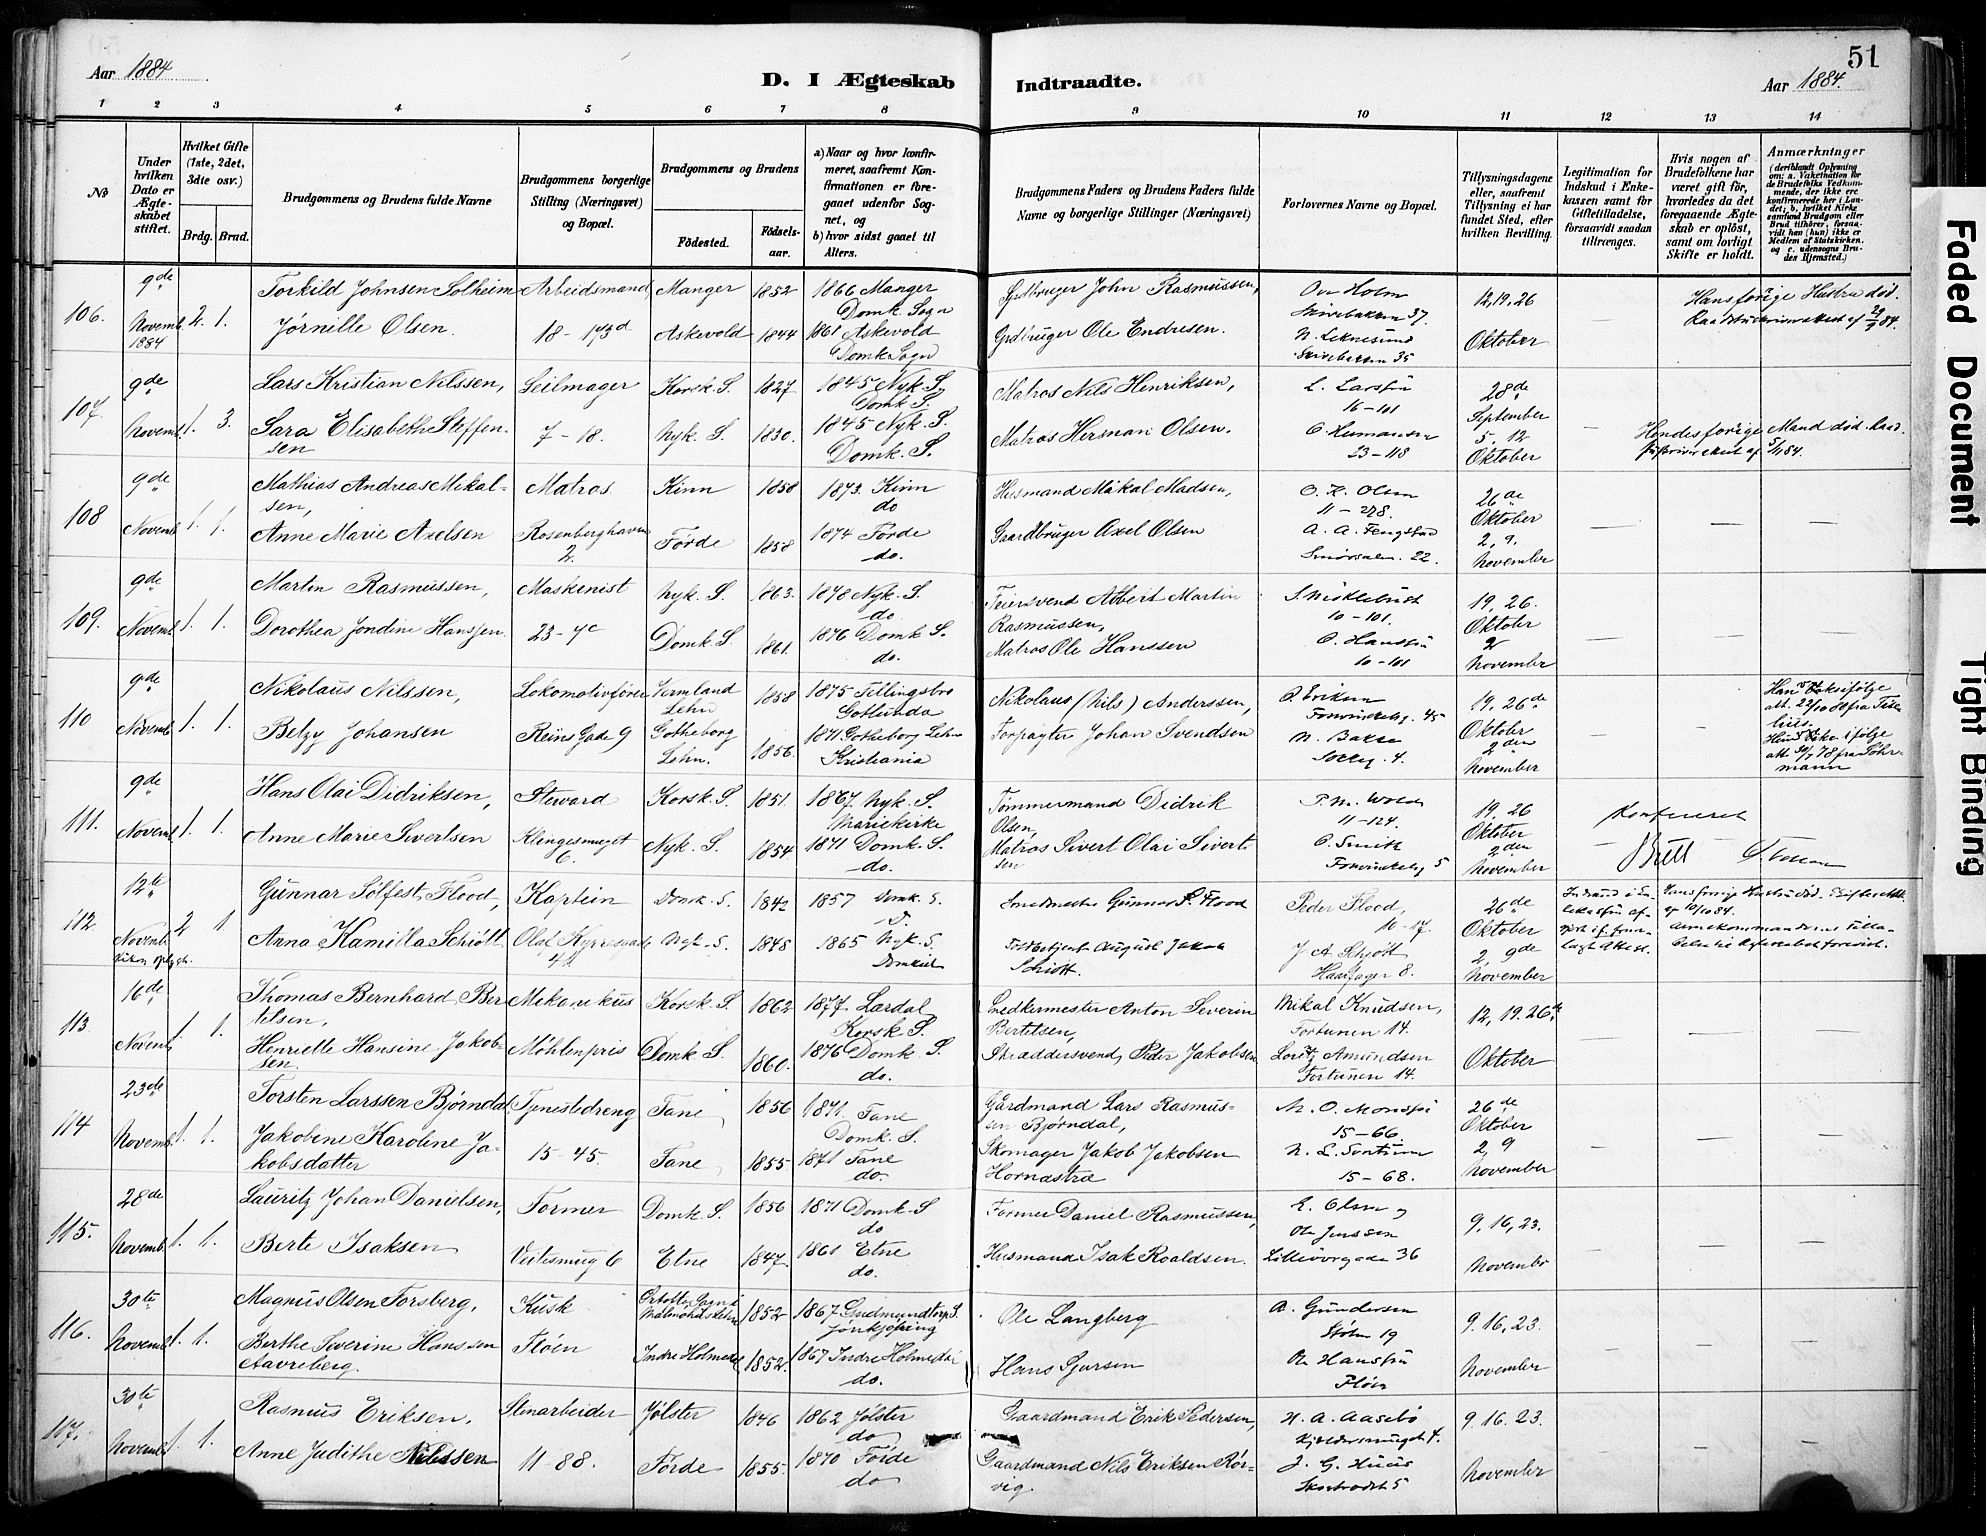 51
Aar 1884
D. I Ægteskab Indtraadte.
Aar 1884.
1 2 3 4 5 6 7 8 9 10 11 12 13 14
No
Under hvilken Dato er Ægteskabet stiftet.
Hvilket Gifte (1ste, 2det, 3die osv.)
Brdg. Brud.
Brudgommens og Brudens fulde Navne
Brudgommens borgerlige Stilling (Næringsvei) og Bopæl.
Brudgommens og Brudens
Födested.
Födselsaar.
a) Naar og hvor konfirmeret, saafremt Konfirmationen er foregaaet udenfor Sognet, og
b) hvor sidst gaaet til Alters.
Brudgommens Faders og Brudens Faders fulde Navne og borgerlige Stillinger (Næringsvei)
Forlovernes Navne og Bopæl.
Tillysningsdagene eller, saafremt Tillysning ei har fundet Sted, efter hvilken Bevilling.
Legitimation for Indskud i Enkekassen samt for Giftetilladelse, forsaavidt saadan tiltrænges.
Hvis nogen af Brudefolkene har været gift før, hvorledes da det foregaaende Ægteskab er opløst, samt om lovligt Skifte er holdt.
Anmærkninger (deriblandt Oplysning om: a. Vakcination for de Brudefolks Vedkommende, der ikke ere konfirmerede her i Landet; b. hvilket Kirkesamfund Brudgom eller Brud tilhører, forsaavidt han (hun) ikke er Medlem af Statskirken, og c. udensogns Brudes Hjemsted.)
106. 9de Novemb. 1884 2. 1.
Torkild Johnsen Solheim Arbeidsmand Manger 1852 1866 Manger Domk. Sogn
Grdbruger John Rasmussen, Ove Holm 37. 12, 19, 26
Hans forige Hustru død.
Jørnille Olsen. 18-173d Askevold 1844 1861 Askevold Domk. Sogn
Grdbruger Ole Endresen. 35 Oktober
107. 9de Novemb. 1. 3.
Lars Kristian Nilssen, Seilmager Korsk. S. 1827 1845 Nyk. S. Domk. S.
Matros Nils Henriksen, 16-101 28de September
Sara Elisabeth Steffensen 7-18. Nyk. S. 1830. 1845 Nyk. S. Domk. S.
Matros Herman Olsen. 23-118 5, 12 Oktober
Hendes forige Mand død.
108 9de Novemb. 1. 1.
Mathias Andreas Mikalsen, Matros Kinn 1858 1873. Kinn do
Husmand Mikal Madsen, O. K. Olsen 11-278. 26de Oktober
Anne Marie Axelsen Rosenberghavn 2. Førde 1858 1874 Førde do.
Gaardbruger Axel Olsen A. A. 22. 2, 9. November
109. 9de Novemb. 1. 1.
Martin Rasmussen, Maskenist Nyk. S. 1863. 1878 Nyk. S. do
Feiersvend Albert Martin Rasmussen, 10-101. 19, 26. Oktober
Dorothea Jondine Hanssen. 23-7c Domk. S. 1861. 1876 Domk. S. do.
Matros Ole Hanssen 10-101 2 November
110 9de Novemb. 1. 1.
Nikolaus Nilssen, Lokomotivfører Vermland Lehn 1858 1875 Fellingsbro Gotlunda
Nikolaus (Nils) Anderssen, O. Eriksen 45 19. 26de Oktober
Betzy Johansen Reins Gade 9 Gotheborg Lehn. 1856. 1871 Gotheborg Lehn Kristiania
Forpagter Johan Svendsen N. 4. 2den November
111. 9de Novemb. 1. 1.
Hans Olai Didriksen, Steward Korsk. S. 1851. 1867 Nyk. S. Mariekirke
Tømmermand Didrik Olsen, 11-124. 19, 26 Oktober
Konfereret
Anne Marie Sivertsen Klingesmuget 6. Nyk. S. 1854. 1871 Domk. S. do.
Matros Sivert Olai Sivertsen 5 2den November
112 12te Novemb. 2 1.
Gunnar Solfest Flood, Kaptein Domk. S. 1842 1857 Domk. S. D.
Smedmester Gunnar S. Flood Peder Flood, 10-17. 26de Oktober
Anna Kamilla Schiött Olaf Kyrresgade 44 Nyk. S. 1848 1865 Nyk. S. Domkirk
Toldbetjent August Jakob Schiött. J. A. Schjött Haarfager 8. 2, 9de November
113 16de Novemb. 1. 1.
Thomas Bernhard Bertelsen, Mekanikus Korsk. S. 1862 1877 Lærdal Korsk. S.
Snedkermester Anton Severin Bertelsen, Mikal Knudsen, Fortunen 14. 12, 19. 26de
Henriette Hansine Jakobsen. Møhlenpris Domk. S. 1860. 1876 Domk. S. do.
Skraddersvend, Peder Jakobsen Loritz Amundsen Fortunen 14. Oktober
114 23de Novemb. 1. 1.
Torsten Larssen Bjørndal, Tjenestedreng Fane 1856 1871. Fane Domk. S.
Gårdmand Lars Rasmussen Bjørndal, 15-66. 26de Oktober
Jakobine Karoline Jakobsdatter 15-45. Fane 1855 1871 Fane do.
Skomager Jakob Jakobsen Hornastræ 15-68. 2, 9 November
115. 28de Novemb. 1. 1.
Lauritz Johan Danielsen, Former Domk. S. 1856 1871 Domk. S do
Former Daniel Rasmussen, E. Olsen og Ole Jenssen 9, 16, 23.
Berte Isaksen Veitesmug 6 Etne 1847. 1861 Etne do.
Husmand Isak Roaldsen. 36 November
116. 30te Novemb. 1. 1.
Magnus Olsen Forsberg, Kusk 1852 1867 Gudmundtorp S. Jönkjöbing
Ole Langberg A. Gundersen Stølen 19 9. 16, 23.
Berthe Severine Hanssen Aavreberg. Fløen Indre Holmedal 1852. 1867 Indre Holmedal do.
Hans Sjursen Ole Hanssen Fløen November
117. 30te Novemb. 1. 1.
Rasmus Eriksen, Stenarbeider Jølster 1846 1862 Jølster do
Gaardmand Erik Pedersen, H. A. Aasebø 4. 9. 16. 23.
Anne Judithe Nilssen 11-88. Førde 1855. 1870 Førde do
Gaardmand Nils Eriksen Rørvig. 5 November
Faded Document
Tight Binding